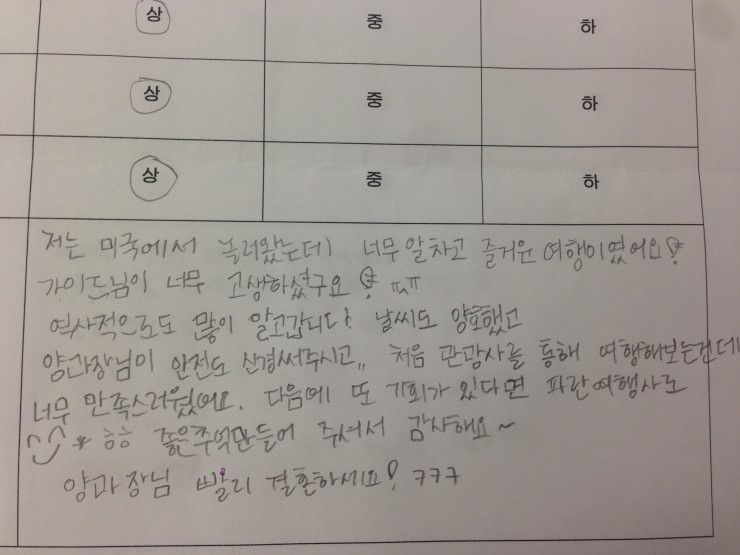 상 중 하
상 중 하
상 중 하
저는 미국에서 놀러왔는데 너무 알차고 즐거운 여행이였어요!
가이드님이 너무 고생하셨구요! ㅠㅠ
역사적으로도 많이 알고갑니다! 날씨도 양호했고
양과장님이 안전도 신경써주시고,, 처음 관광사를 통해 여행해보는건데
너무 만족스러웠어요. 다음에 또 기회가 있다면 파란여행사로
^^* ㅎㅎ 좋은추억만들어 주셔서 감사해요~
양과장님 빨리 결혼하세요! ㅋㅋㅋ